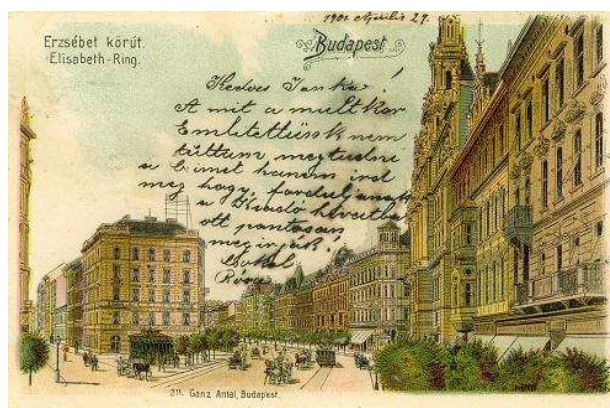 1901 Április 29.
Erzsébet körút.
Elisabeth-Ring.
Budapest
Kedves Janka!
A mit a multkor
Emlitettünk nem
tudtam megtudni
a cimet hanem ird
meg hogy, forduljanak
a Kiadó hivatalba
ott pontosan
megirják!
Róza
311. Ganz Antal, Budapest.